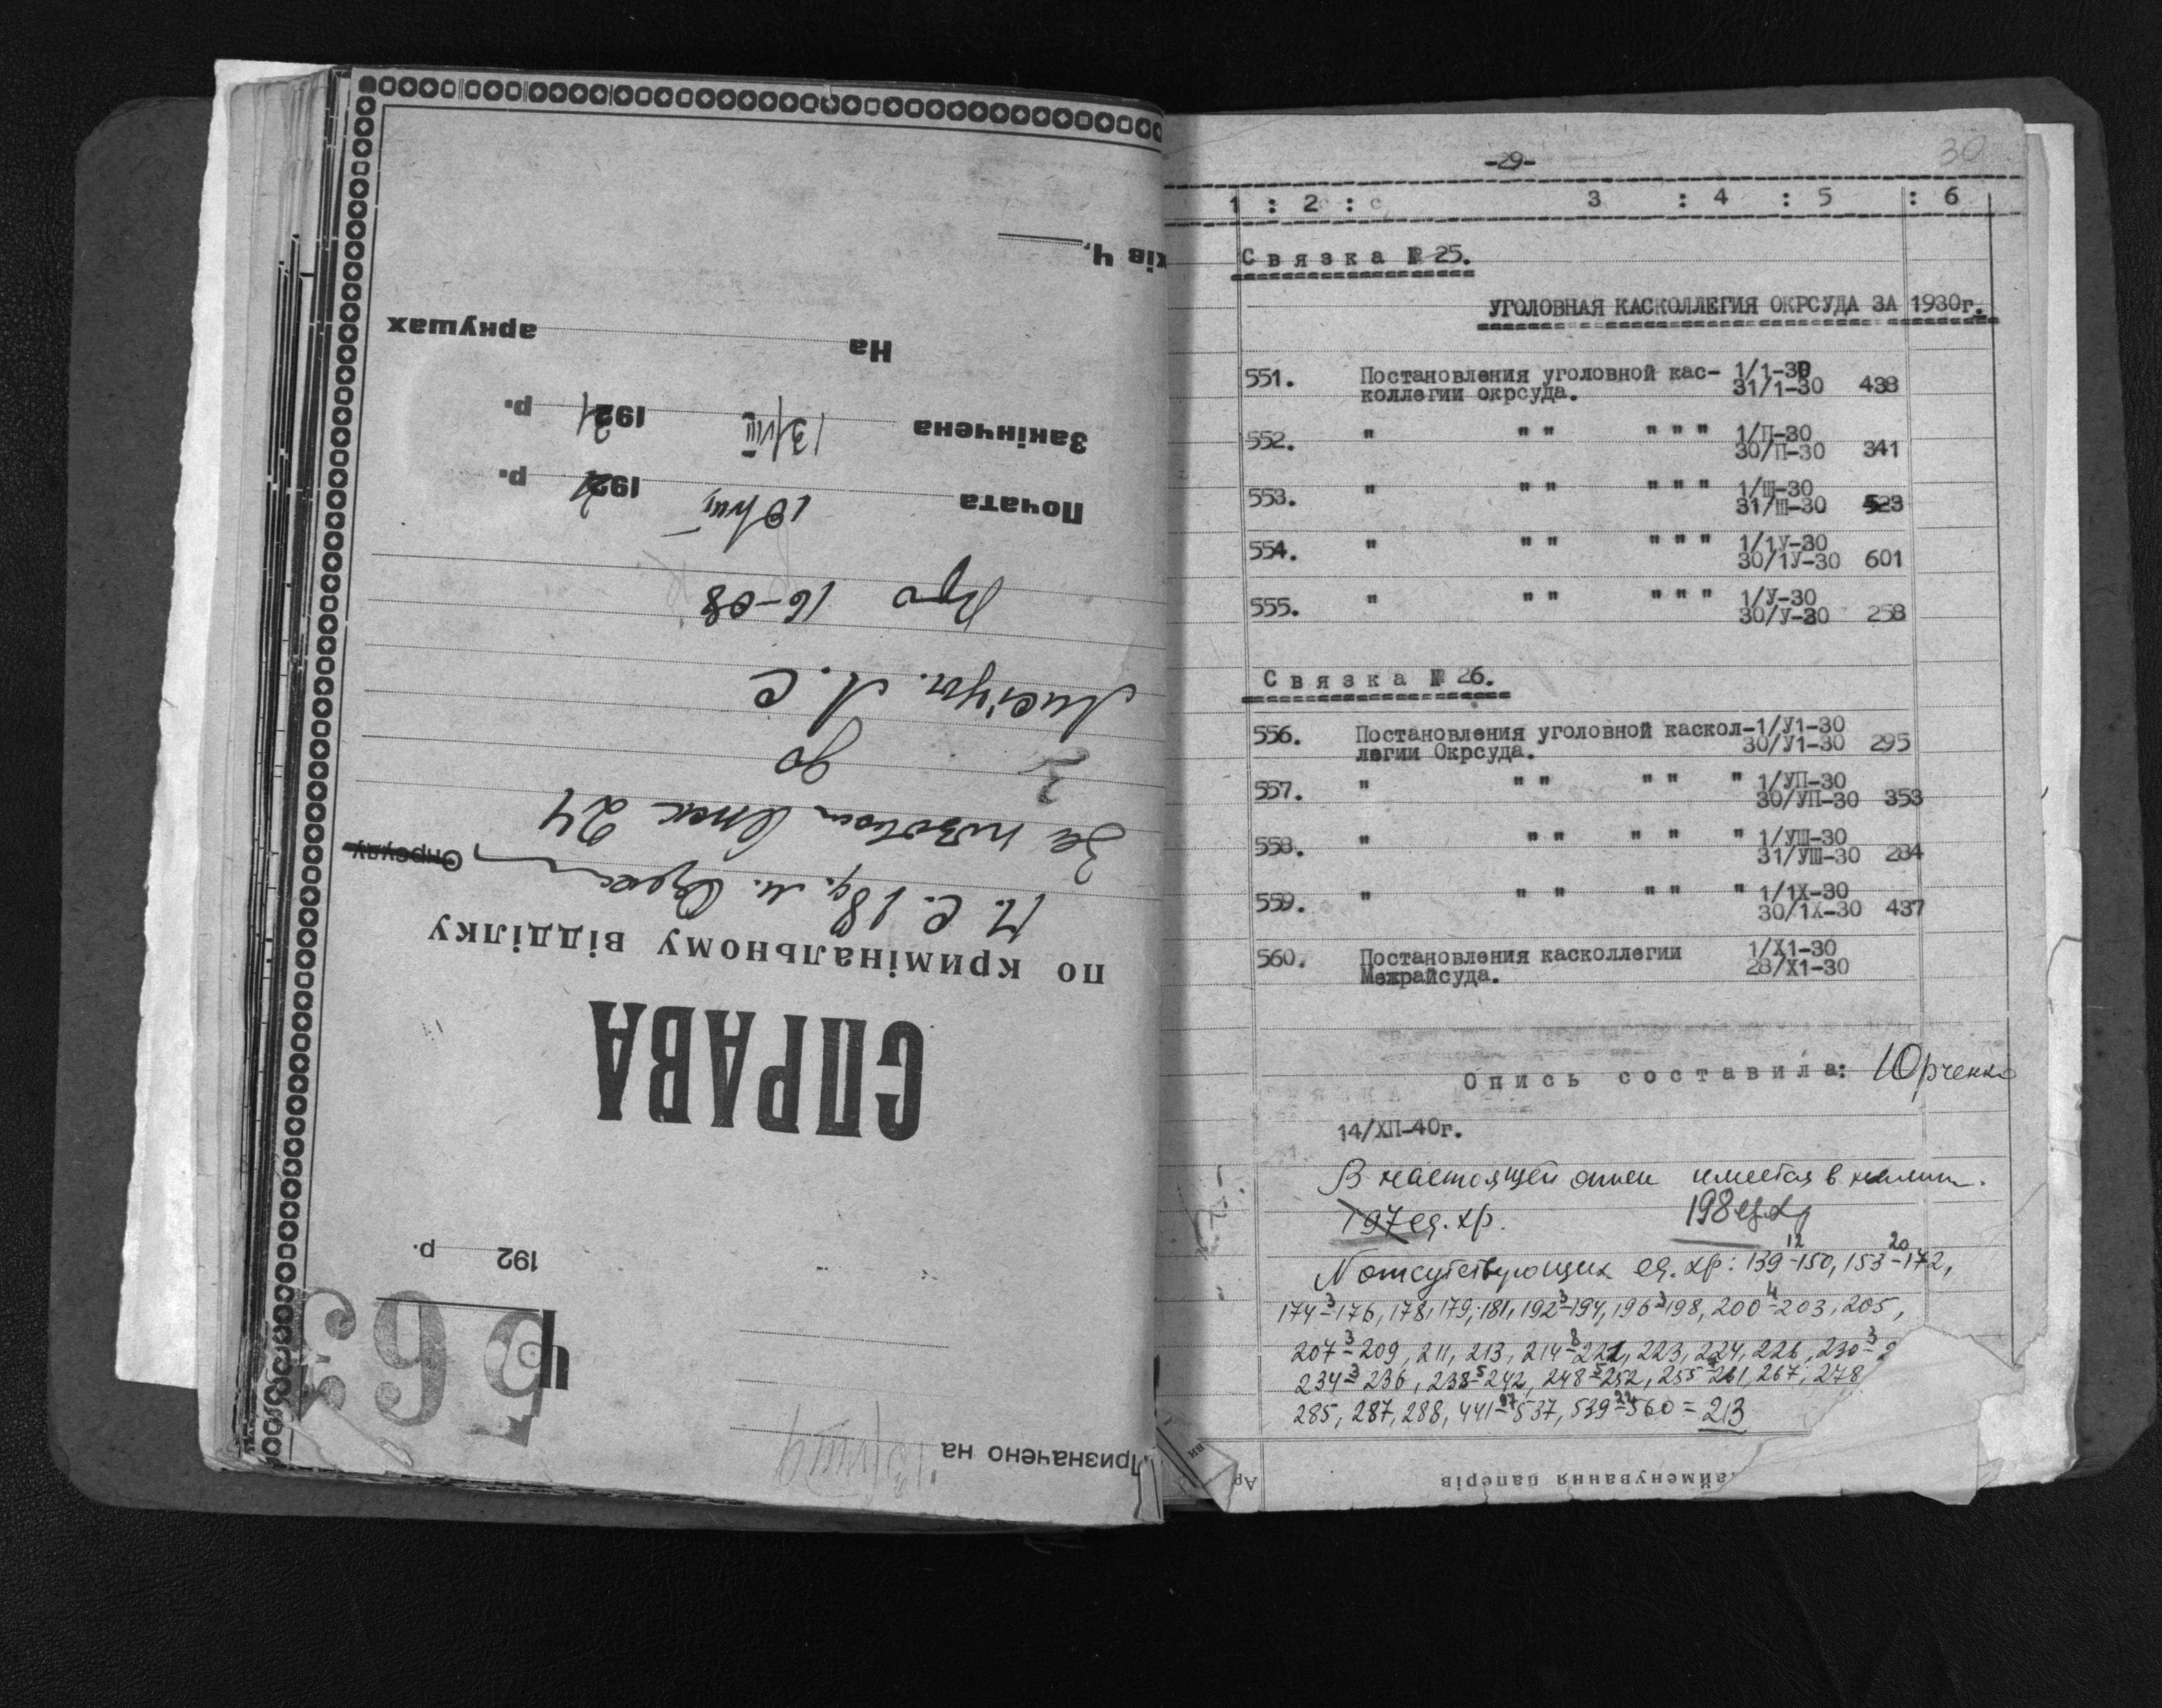 СПРАВА
по кримінальному відділку
Окрсуду
За позовом 24
З до
Листун. Л. С
Про 16-08
Почата 192 р.
Закінчена 13/VIII 192 р.
На аркушах
ків Ч.
192 р.
Ч
563
Призначено на
-29-
30
1 : 2 : 3 : 4 : 5 : 6
Связка № 25.
УГОЛОВНАЯ КАСКОЛЛЕГИЯ ОКРСУДА ЗА 1930г.
551. Постановления уголовной кас- 1/1-30
коллегии окрсуда. 31/1-30 438
552. " " " " " " 1/П-30
30/П-30 341
553. " " " " " " 1/Ш-30
31/Ш-30 523
554. " " " " " " 1/1У-30
30/1У-30 601
555. " " " " " " 1/У-30
30/У-30 258
Связка № 26.
556. Постановления уголовной каскол- 1/У1-30
легии Окрсуда. 30/У1-30 295
557. " " " " " " 1/УП-30
30/УП-30 353
558. " " " " " " 1/УШ-30
31/УШ-30 284
559. " " " " " " 1/1Х-30
30/1Х-30 437
560. Постановления касколлегии 1/Х1-30
Межрайсуда. 28/Х1-30
Опись составила: Юрченко
14/ХП-40г.
В настоящей описи имеется в налич.
197 ед. хр. 198 ед. хр
N отсутствующих ед. хр: 139-12-150, 153-20-172,
174-3-176, 178, 179, 181, 192-3-194, 196-3-198, 200-4-203, 205,
207-3-209, 211, 213, 214-8-221, 223, 224, 226, 230-3-2
234-3-236, 238-5-242, 248-5-252, 255-261, 267, 278
285, 287, 288, 441-97-537, 539-22-560 = 213
айменування паперів
Ар